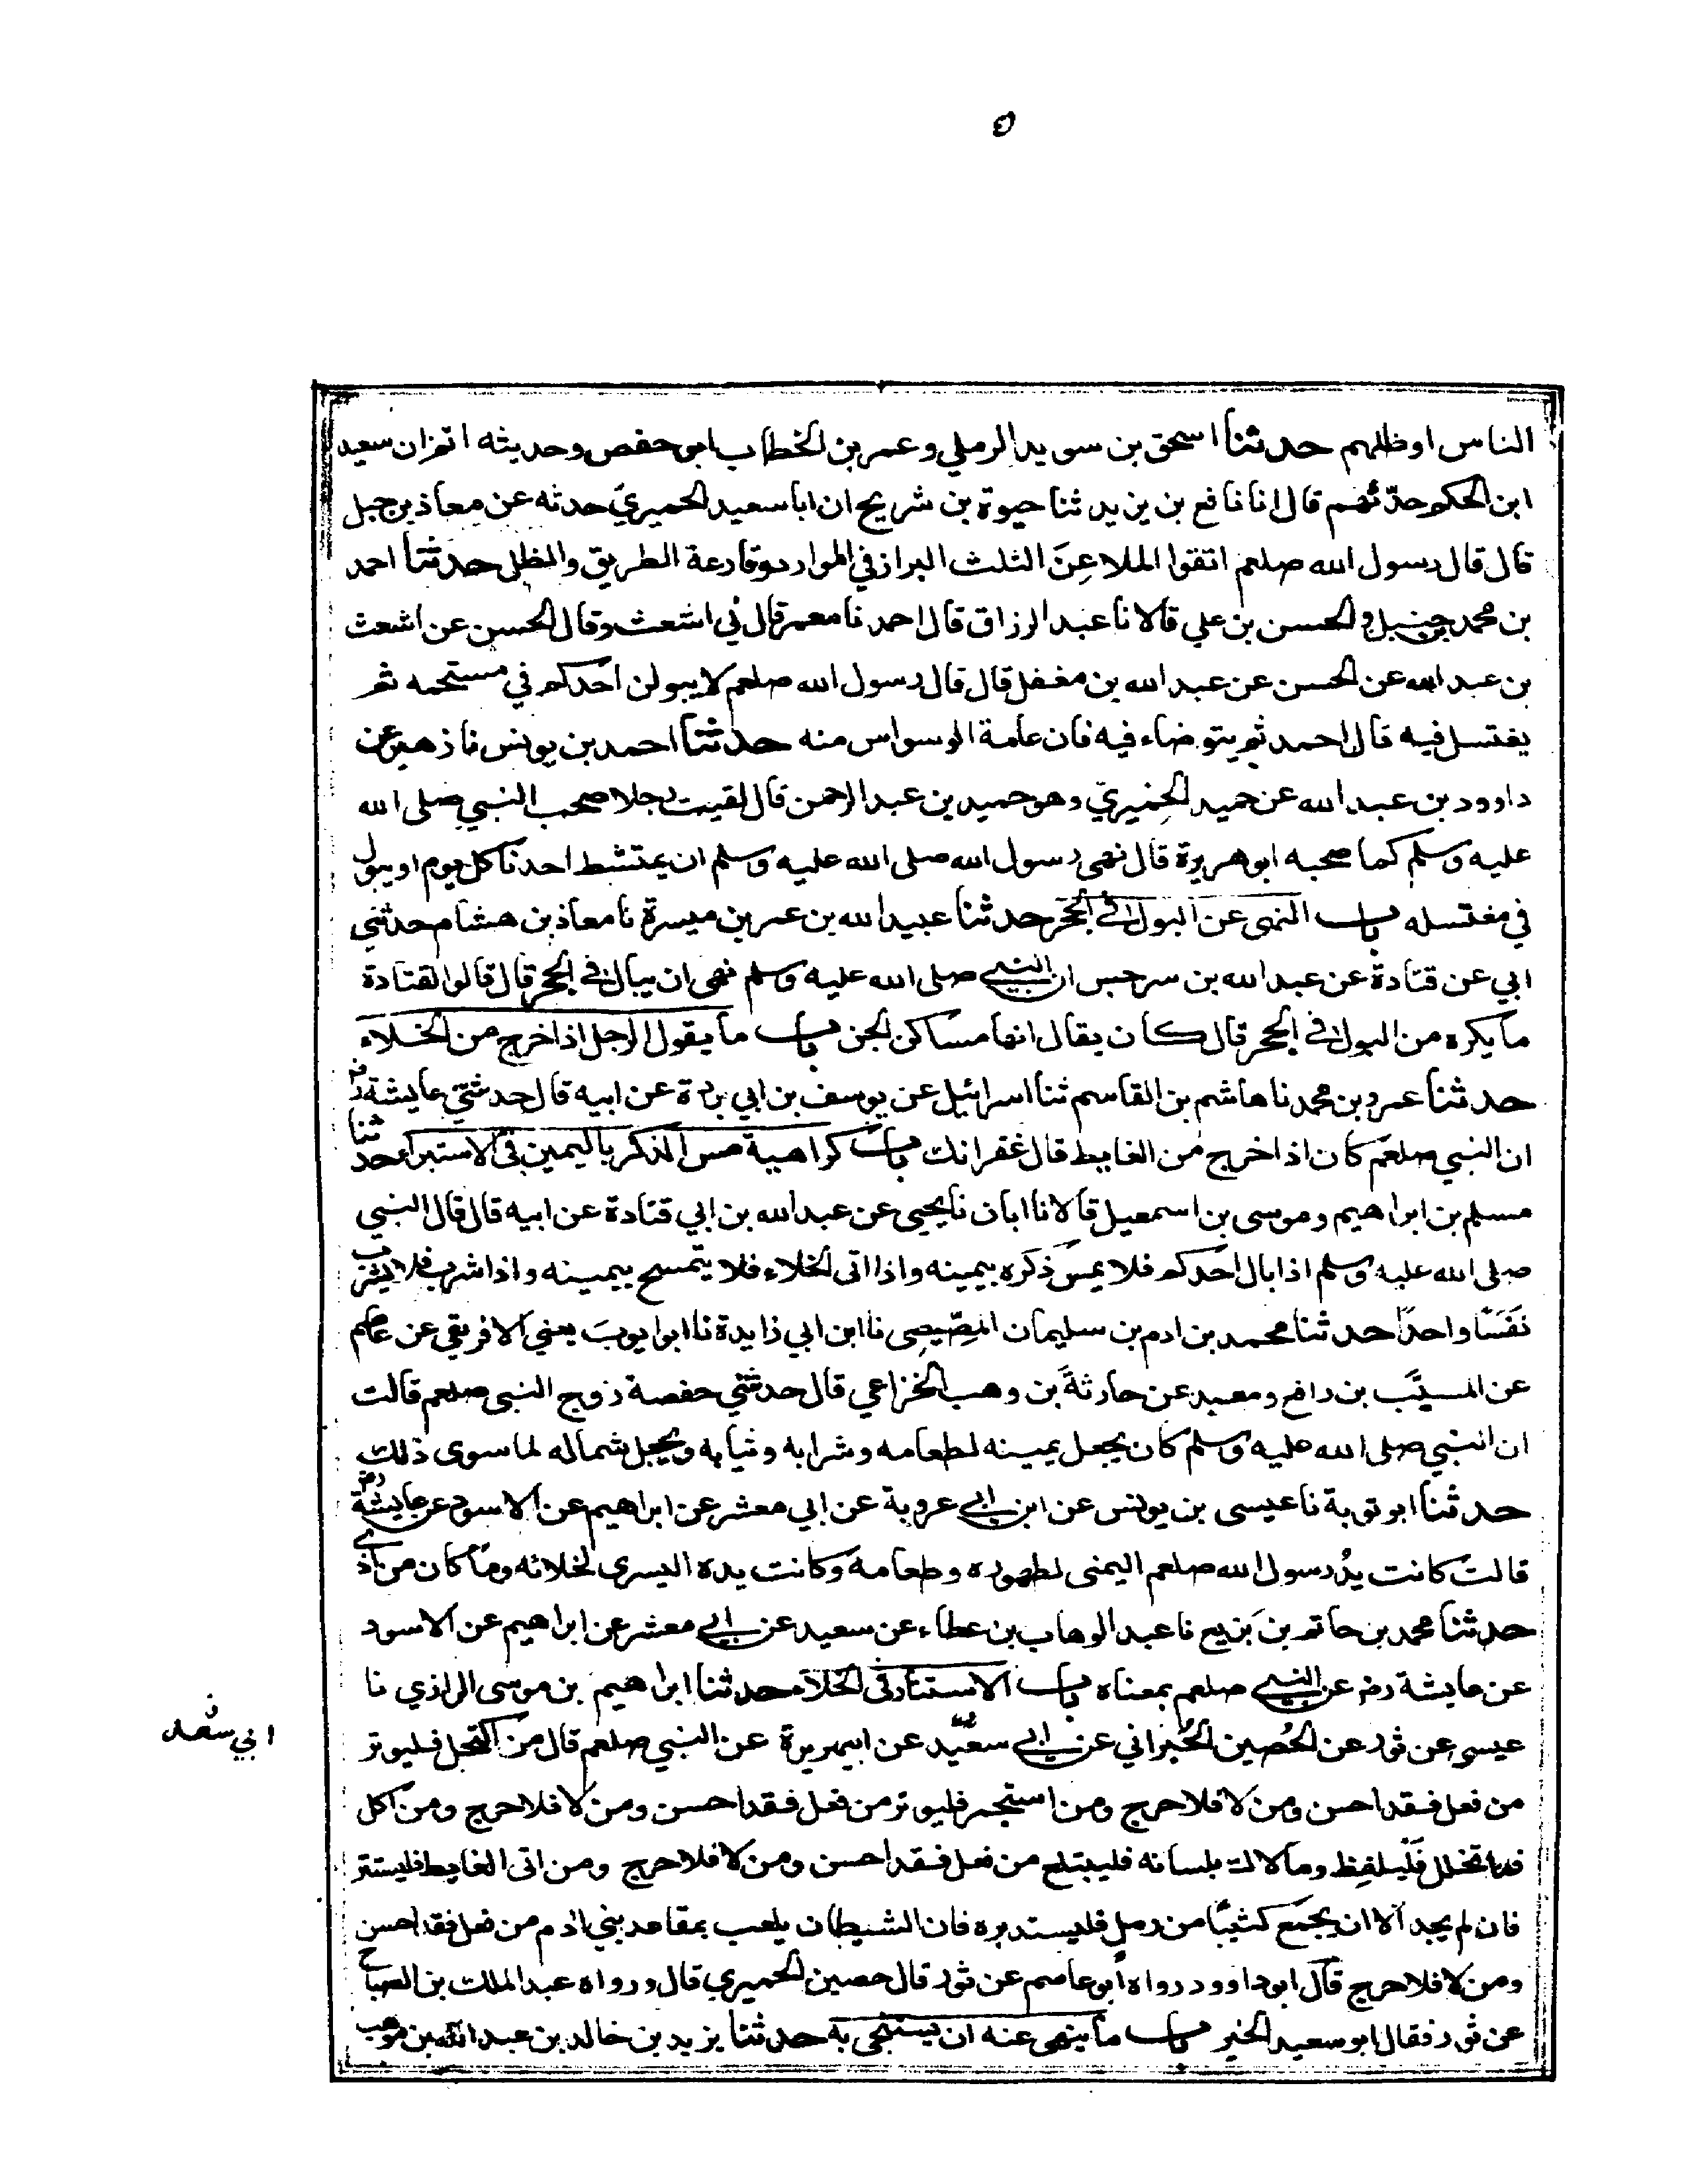 ٥
الناس او ظلهم حدثنا اسحق بن سويد الرملي وعمر بن الخطاب ابو حفص وحديثه اتم ان سعيد
ابن الحكم حدّثهم قال انا نافع بن يزيد ثنا حيوة بن شريح ان ابا سعيد الحميري حدثه عن معاذ بن جبل
قال قال رسول الله صلعم اتقوا الملاعِنَ الثلث البراز في الموارد وقارعة الطريق والظل حدثنا احمد
بن محمد بن حنبل والحسن بن علي قالا نا عبد الرزاق قال احمد نا معمر قال ني اشعث وقال الحسن عن اشعث
بن عبد الله عن الحسن عن عبد الله بن مغفل قال قال رسول الله صلعم لا يبولن احدكم في مستحمه ثم
يغتسل فيه قال احمد ثم يتوضاء فيه فان عامة الوسواس منه حدثنا احمد بن يونس نا زهير عن
داوود بن عبد الله عن حميد الحِمْيري وهو حميد بن عبد الرحمن قال لقيت رجلا صحب النبي صلى الله
عليه وسلم كما صحبه ابو هريرة قال نهى رسول الله صلى الله عليه وسلم ان يمتشط احدنا كل يوم او يبول
في مغتسله باب النهى عن البول في الجحر حدثنا عبيد الله بن عمر بن ميسرة نا معاذ بن هشام حدثني
ابي عن قتادة عن عبد الله بن سرجس ان النبي صلى الله عليه وسلم نهى ان يبال في الجحر قال قالوا لقتادة
ما يكره من البول في الجحر قال كان يقال انها مساكن الجن باب ما يقول الرجل اذا خرج من الخلاء
حدثنا عمرو بن محمد نا هاشم بن القاسم ثنا اسرائيل عن يوسف بن ابي بردة عن ابيه قال حدثتني عايشة رض
ان النبي صلعم كان اذا خرج من الغايط قال غفرانك باب كراهية مس الذكر باليمين في الاستبراء حدثنا
مسلم بن ابراهيم وموسى بن اسمعيل قالا نا ابان نا يحيى عن عبد الله بن ابي قتادة عن ابيه قال قال النبي
صلى الله عليه وسلم اذا بال احدكم فلا يمسّ ذكره بيمينه واذا اتى الخلاء فلا يتمسح بيمينه واذا شرب فلا يشرب
نَفَسًا واحدًا حدثنا محمد بن ادم بن سليمان المصّيصي نا ابن ابي زايدة نا ابو ايوبَ يعني الافريقي عن عاصم
عن المسيَّب بن رافع ومعبد عن حارثةَ بن وهب الخزاعي قال حدثتني حفصة زوج النبي صلعم قالت
ان النبي صلى الله عليه وسلم كان يجعل يمينه لطعامه وشرابه وثيابه ويجعل شماله لما سوى ذلك
حدثنا ابو توبة نا عيسى بن يونس عن ابن ابي عروبة عن ابي معشر عن ابراهيم عن الاسود عن عايشة رض
قالت كانت يدُ رسول الله صلعم اليمنى لطهوره وطعامه وكانت يده اليسرى لخلائه وما كان من اذى
حدثنا محمد بن حاتم بن بَزيع نا عبد الوهاب بن عطاء عن سعيد عن ابي معشر عن ابراهيم عن الاسود
عن عايشة رض عن النبي صلعم بمعناه باب الاستتار في الخلاء حدثنا ابراهيم بن موسى الرازي نا
عيسى عن ثور عن الحُصين الحُبْراني عن ابي سعيد عن ابي هريرة عن النبي صلعم قال من اكتحل فليوتر
ابي سعد
من فعل فقد احسن ومن لا فلا حرج ومن استجمر فليوتر من فعل فقد احسن ومن لا فلا حرج ومن اكل
فما تخلل فَلْيلفِظ وما لاك بلسانه فليبتلع من فعل فقد احسن ومن لا فلا حرج ومن اتى الغايط فليستتر
فان لم يجد الا ان يجمَع كثيبًا من رمل فليستدبره فان الشيطان يلعب بمقاعد بني ادم من فعل فقد احسن
ومن لا فلا حرج قال ابو داوود رواه ابو عاصم عن ثور قال حصين الحميري قال ورواه عبد الملك بن الصباح
عن ثور فقال ابو سعيد الخير باب ما ينهى عنه ان يستنجى به حدثنا يزيد بن خالد بن عبد الله بن موهب